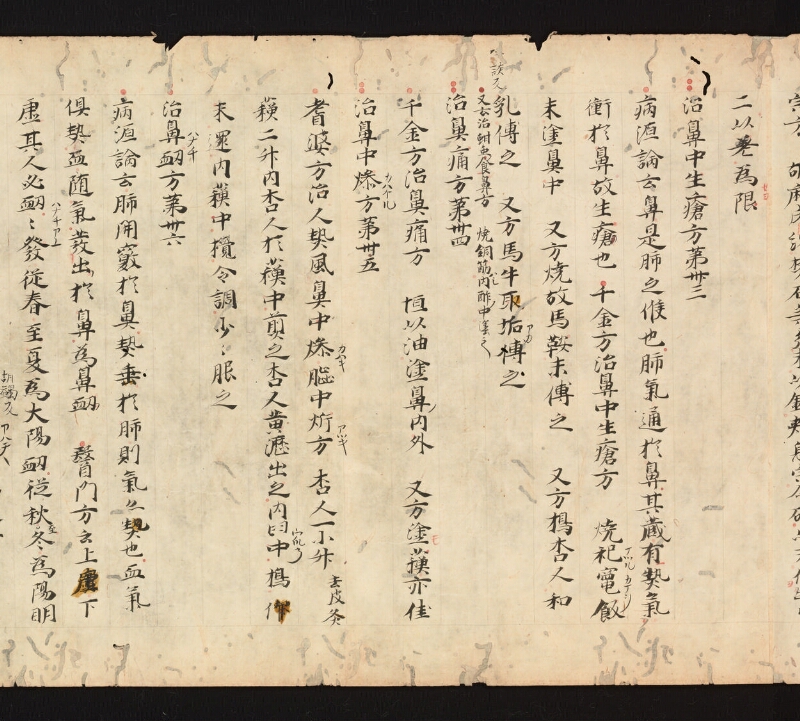 二以差為限
治鼻中生瘡方第卅三
病源論云鼻是肺之候也肺氣通於鼻其藏有熱氣
衝於鼻故生瘡也 千金方治鼻中生瘡方 燒祀竈飯
末塗鼻中 又方燒故馬鞍末傅之 又方搗杏人和
乳傅之 又方馬牛耳垢傅之
又云治䘌蟲食鼻方 燒銅筋內酢中塗之
治鼻痛方第卅四
千金方治鼻痛方 恒以油塗鼻內外 又方塗蘓亦佳
治鼻中燥方第卅五
耆婆方治人熱風鼻中燥腦中㶼方 杏人一小升 去皮炙
蘓二升內杏人於蘓中煎之杏人黃瀝出之內臼中搗作
末還內蘓中攪令調少〻服之
治鼻衄方第卅六
病源論云肺開竅於鼻熱乘於肺則氣亦熱也血氣
俱熱血隨氣發出於鼻為鼻衄 醫門方云上虛下
虛其人必衄〻發從春至夏為大陽衄從秋至冬為陽明